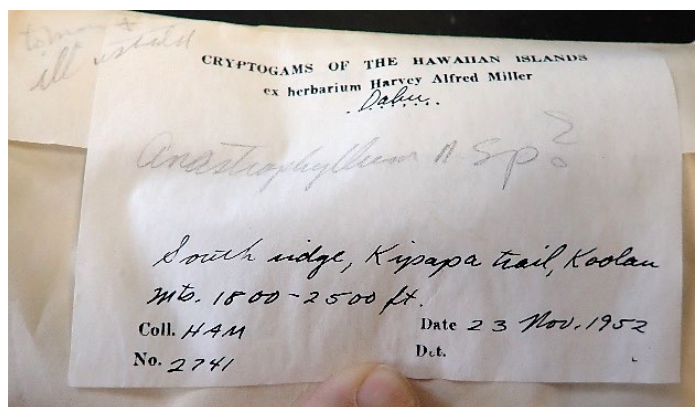 illustrate
CRYPTOGAMS OF THE HAWAIIAN ISLANDS
ex herbarium Harvey Alfred Miller
Oahu
Anastrophyllum n sp?
South ridge, Kipapa trail, Koolau
Mts. 1800-2500 ft.
Coll. HAM
Date 23 Nov. 1952
No. 2741
Det.